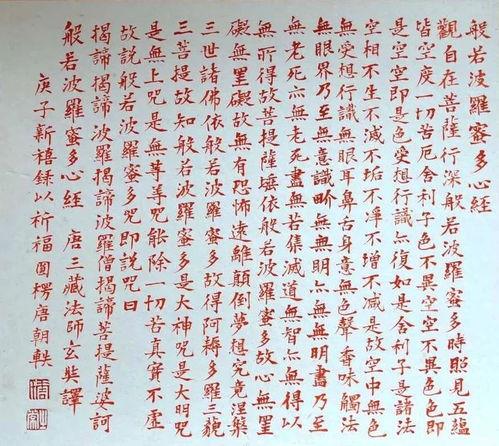 般若波羅蜜多心經
觀自在菩薩行深般若波羅蜜多時照見五蘊
皆空度一切苦厄舍利子色不異空空不異色色即
是空空即是色受想行識亦復如是舍利子是諸法
空相不生不滅不垢不淨不增不減是故空中無色
無受想行識無眼耳鼻舌身意無色聲香味觸法
無眼界乃至無意識界無無明亦無無明盡乃至
無老死亦無老死盡無苦集滅道無智亦無得以
無所得故菩提薩埵依般若波羅蜜多故心無罣
礙無罣礙故無有恐怖遠離顛倒夢想究竟涅槃
三世諸佛依般若波羅蜜多故得阿耨多羅三藐
三菩提故知般若波羅蜜多是大神咒是大明咒
是無上咒是無等等咒能除一切苦真實不虛
故說般若波羅蜜多咒即說咒曰
揭諦揭諦波羅揭諦波羅僧揭諦菩提薩婆訶
般若波羅蜜多心經 唐三藏法師玄奘譯
庚子新禧錄以祈福圓楞唐朝軼